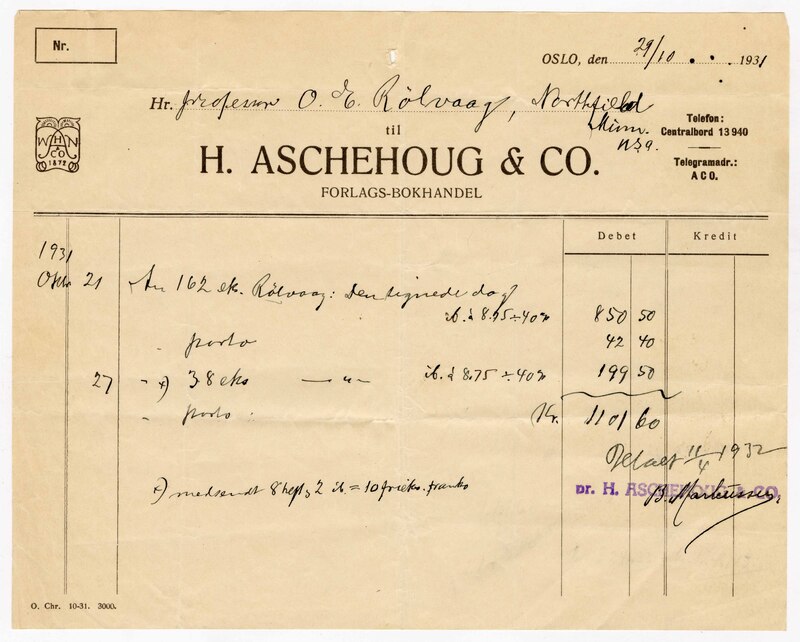 Nr.
OSLO, den 29/10 1931
Hr. Professor O. E. Rölvaag, Northfield
Minn.
U.S.A.
til
Telefon:
Centralbord 13 940
Telegramadr.:
ACO.
W H N
& CO
1872
H. ASCHEHOUG & CO.
FORLAGS-BOKHANDEL
Debet Kredit
1931
Okt. 21 An 162 eks. Rölvaag: Den signede dag
ib. à 8.75 ÷ 40% 850 50
" porto 42 40
27 " x) 38 eks — " — ib. à 8.75 ÷ 40% 199 50
" porto : Kr. 1101 60
Betalt 11/4 1932
pr. H. ASCHEHOUG & CO.
B. Markussen
x) medsendt 8 heft, 2 ib. = 10 frieks. franko
O. Chr. 10-31. 3000.